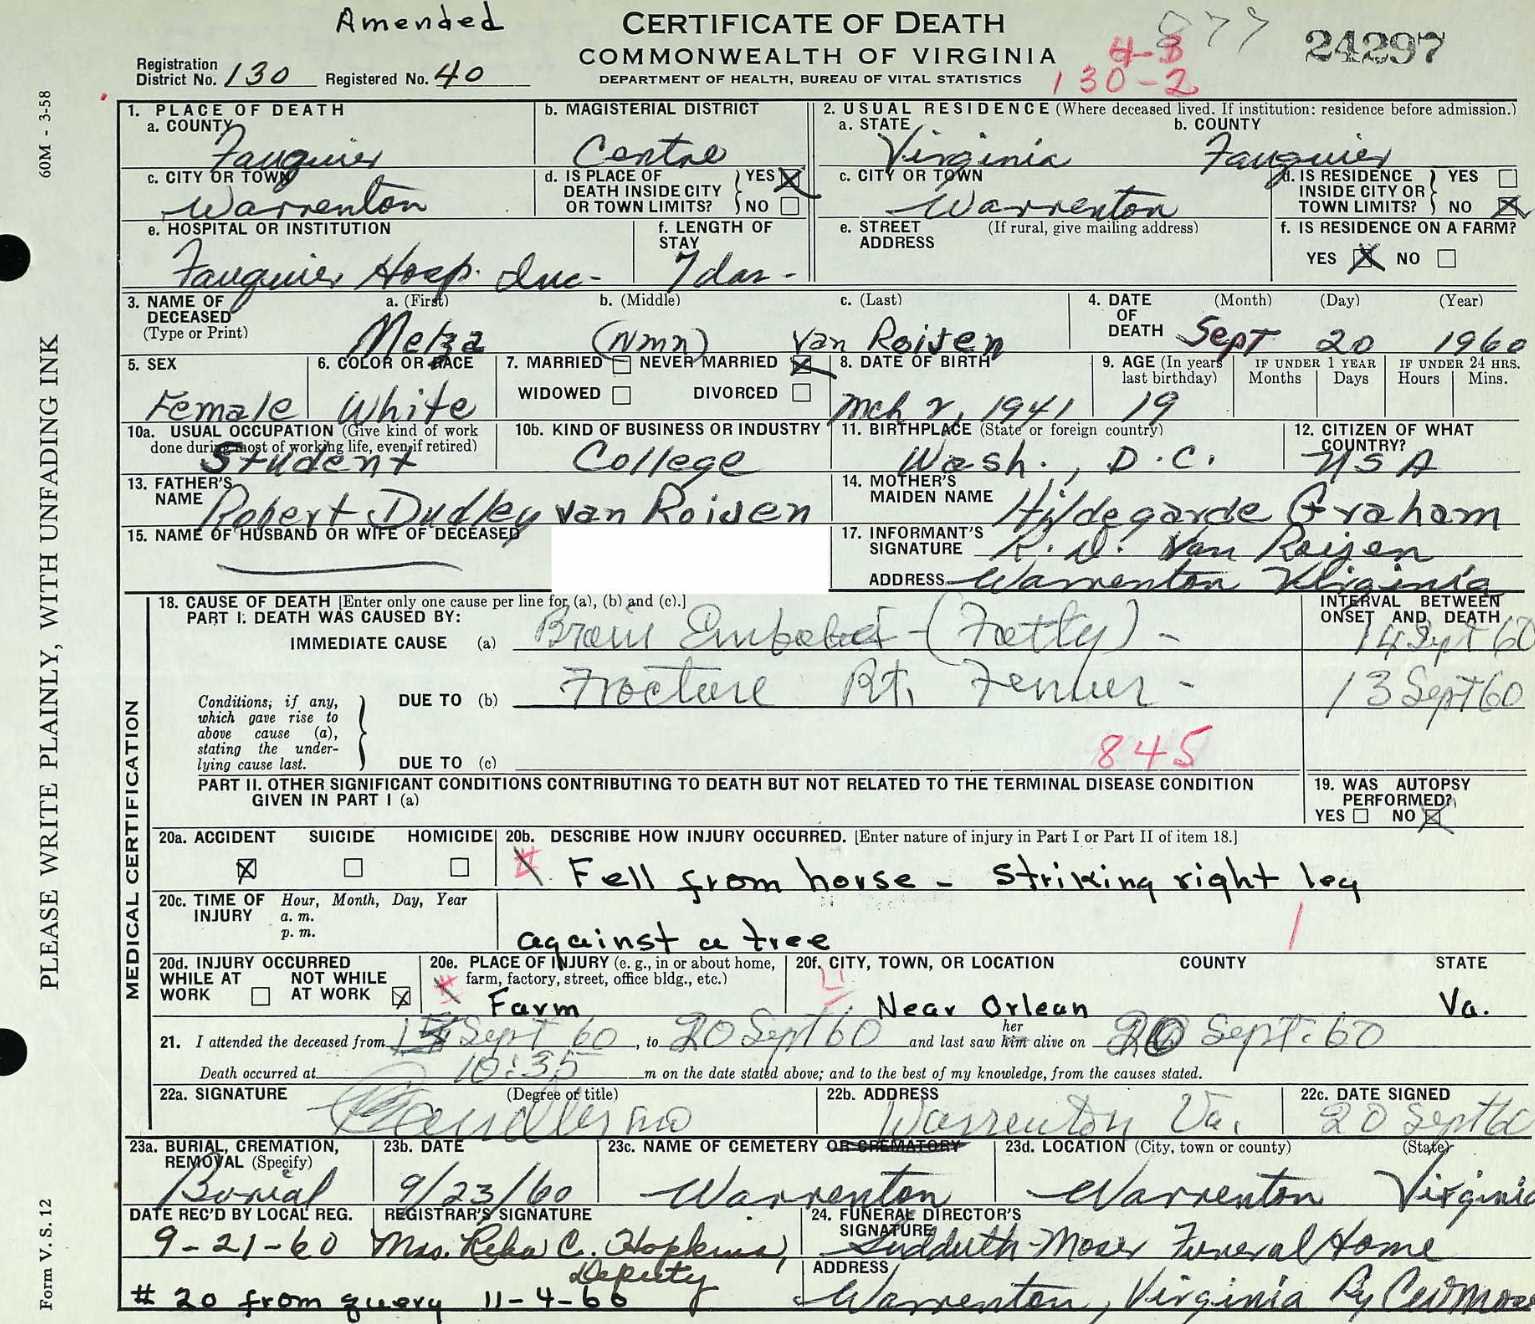 Amended
CERTIFICATE OF DEATH
877
24297
COMMONWEALTH OF VIRGINIA
4-3
Registration District No. 130 Registered No. 40
DEPARTMENT OF HEALTH, BUREAU OF VITAL STATISTICS
130-2
60M - 3-58
PLEASE WRITE PLAINLY, WITH UNFADING INK
Form V. S. 12
1. PLACE OF DEATH
a. COUNTY
Fauquier
b. MAGISTERIAL DISTRICT
Centre
2. USUAL RESIDENCE (Where deceased lived. If institution: residence before admission.)
a. STATE
Virginia
b. COUNTY
Fauquier
c. CITY OR TOWN
Warrenton
d. IS PLACE OF DEATH INSIDE CITY OR TOWN LIMITS? YES X NO
c. CITY OR TOWN
Warrenton
d. IS RESIDENCE INSIDE CITY OR TOWN LIMITS? YES NO X
e. HOSPITAL OR INSTITUTION
Fauquier Hosp. Inc-
f. LENGTH OF STAY
7 das-
e. STREET ADDRESS (If rural, give mailing address)
f. IS RESIDENCE ON A FARM?
YES X NO
3. NAME OF DECEASED (Type or Print)
a. (First) b. (Middle) c. (Last)
Melza (Nmn) van Roijen
4. DATE OF DEATH (Month) (Day) (Year)
Sept 20 1960
5. SEX
Female
6. COLOR OR RACE
White
7. MARRIED NEVER MARRIED X
WIDOWED DIVORCED
8. DATE OF BIRTH
Mch 2, 1941
9. AGE (In years last birthday)
19
IF UNDER 1 YEAR
Months Days
IF UNDER 24 HRS.
Hours Mins.
10a. USUAL OCCUPATION (Give kind of work done during most of working life, even if retired)
Student
10b. KIND OF BUSINESS OR INDUSTRY
College
11. BIRTHPLACE (State or foreign country)
Wash., D.C.
12. CITIZEN OF WHAT COUNTRY?
USA
13. FATHER'S NAME
Robert Dudley van Roijen
14. MOTHER'S MAIDEN NAME
Hildegarde Graham
15. NAME OF HUSBAND OR WIFE OF DECEASED
17. INFORMANT'S SIGNATURE R. D. Van Roijen
ADDRESS Warrenton Virginia
MEDICAL CERTIFICATION
18. CAUSE OF DEATH [Enter only one cause per line for (a), (b) and (c).]
PART I. DEATH WAS CAUSED BY:
INTERVAL BETWEEN ONSET AND DEATH
IMMEDIATE CAUSE (a) Brain Emboli - (Fatty) - 14 Sept 60
Conditions, if any, which gave rise to above cause (a), stating the underlying cause last.
DUE TO (b) Fracture Rt. Femur - 13 Sept 60
DUE TO (c)
845
PART II. OTHER SIGNIFICANT CONDITIONS CONTRIBUTING TO DEATH BUT NOT RELATED TO THE TERMINAL DISEASE CONDITION GIVEN IN PART I (a)
19. WAS AUTOPSY PERFORMED?
YES NO X
20a. ACCIDENT SUICIDE HOMICIDE
X
20b. DESCRIBE HOW INJURY OCCURRED. [Enter nature of injury in Part I or Part II of item 18.]
Fell from horse - striking right leg
against a tree
20c. TIME OF INJURY Hour, Month, Day, Year
a. m.
p. m.
20d. INJURY OCCURRED
WHILE AT WORK NOT WHILE AT WORK X
20e. PLACE OF INJURY (e. g., in or about home, farm, factory, street, office bldg., etc.)
Farm
20f. CITY, TOWN, OR LOCATION COUNTY STATE
Near Orlean Va.
21. I attended the deceased from Sept 60, to 20 Sept 60 and last saw her him alive on 20 Sept. 60
Death occurred at 10:35 m on the date stated above; and to the best of my knowledge, from the causes stated.
22a. SIGNATURE (Degree or title)
22b. ADDRESS
Warrenton Va.
22c. DATE SIGNED
20 Sept 60
23a. BURIAL, CREMATION, REMOVAL (Specify)
Burial
23b. DATE
9/23/60
23c. NAME OF CEMETERY OR CREMATORY
Warrenton
23d. LOCATION (City, town or county) (State)
Warrenton Virginia
DATE REC'D BY LOCAL REG.
9-21-60
REGISTRAR'S SIGNATURE
Mrs. Reba C. Hopkins,
Deputy
24. FUNERAL DIRECTOR'S SIGNATURE
Sudduth-Moser Funeral Home
ADDRESS
Warrenton, Virginia By
# 20 from query 11-4-60